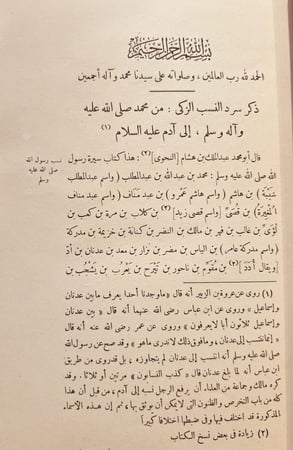 بسم الله الرحمن الرحيم
الحمد لله رب العالمين، وصلواته على سيدنا محمد وآله أجمعين
ذكر سرد النسب الزكى: من محمد صلى الله عليه
وآله وسلم، إلى آدم عليه السلام (١)
نسب رسول الله
صلى الله عليه
وسلم
قال أبو محمد عبدالملك بن هشام [النحوى] (٢): هذا كتاب سيرة رسول
الله صلى الله عليه وسلم: محمد بن عبدالله بن عبدالمطلب (واسم عبدالمطلب
شيبة) بن هاشم (واسم هاشم عمرو) بن عبد مناف (واسم عبد مناف
المغيرة) بن قصى [(واسم قصى زيد] (٢) بن كلاب بن مرة بن كعب بن
لؤى بن غالب بن فهر بن مالك بن النضر بن كنانة بن خزيمة بن مدركة
(واسم مدركة عامر) بن الياس بن مضر بن نزار بن معد بن عدنان بن أد
[(ويقال أدد)] (٢) بن مقوم بن ناحور بن تيرح بن يعرب بن يشجب بن
(١) روى عن عروة بن الزبير أنه قال «ما وجدنا أحدا يعرف ما بين عدنان
وإسماعيل» وروى عن ابن عباس رضى الله عنهما أنه قال «بين عدنان
وإسماعيل ثلاثون أبا لا يعرفون» وروى عن عمر رضى الله عنه أنه قال
«إنما ننتسب إلى عدنان، وما فوق ذلك لا ندرى ما هو» وقد صح عن رسول الله
صلى الله عليه وسلم أنه انتسب إلى عدنان لم يتجاوزه، بل قد روى من طريق
ابن عباس أنه لما بلغ عدنان قال «كذب النسابون» مرتين أو ثلاثا. وقد
كره مالك وجماعة من العلماء أن يرفع الرجل نسبه إلى آدم، من قبل أن هذا
كله من باب التخرص والظنون التى لا يمكن أن يوثق بها، ثم إن هذه الأسماء
المذكورة قد اختلف فيها وفى ضبطها اختلافا كبيرا
(٢) زيادة فى بعض نسخ الكتاب